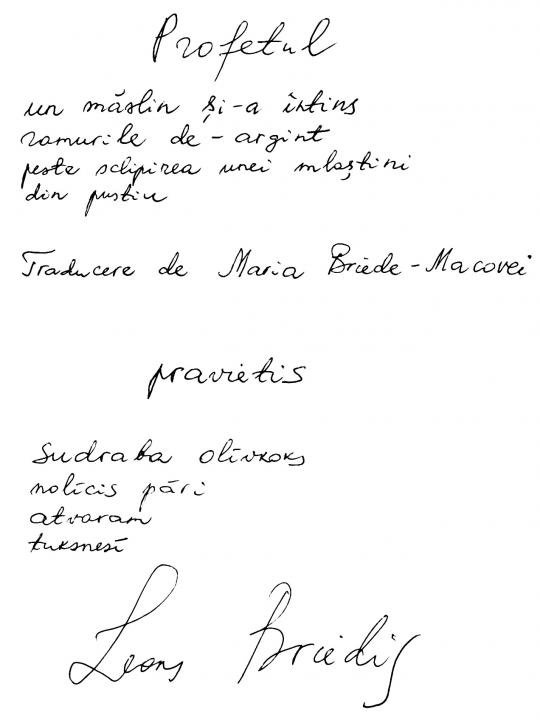 Profetul
un măslin și-a întins
ramurile de-argint
peste sclipirea unei mlaștini
din pustiu
Traducere de Maria Briede-Macovei
pravietis
sudraba olīvkoks
nolīcis pāri
atvaram
tuksnesī
Leons Briedis